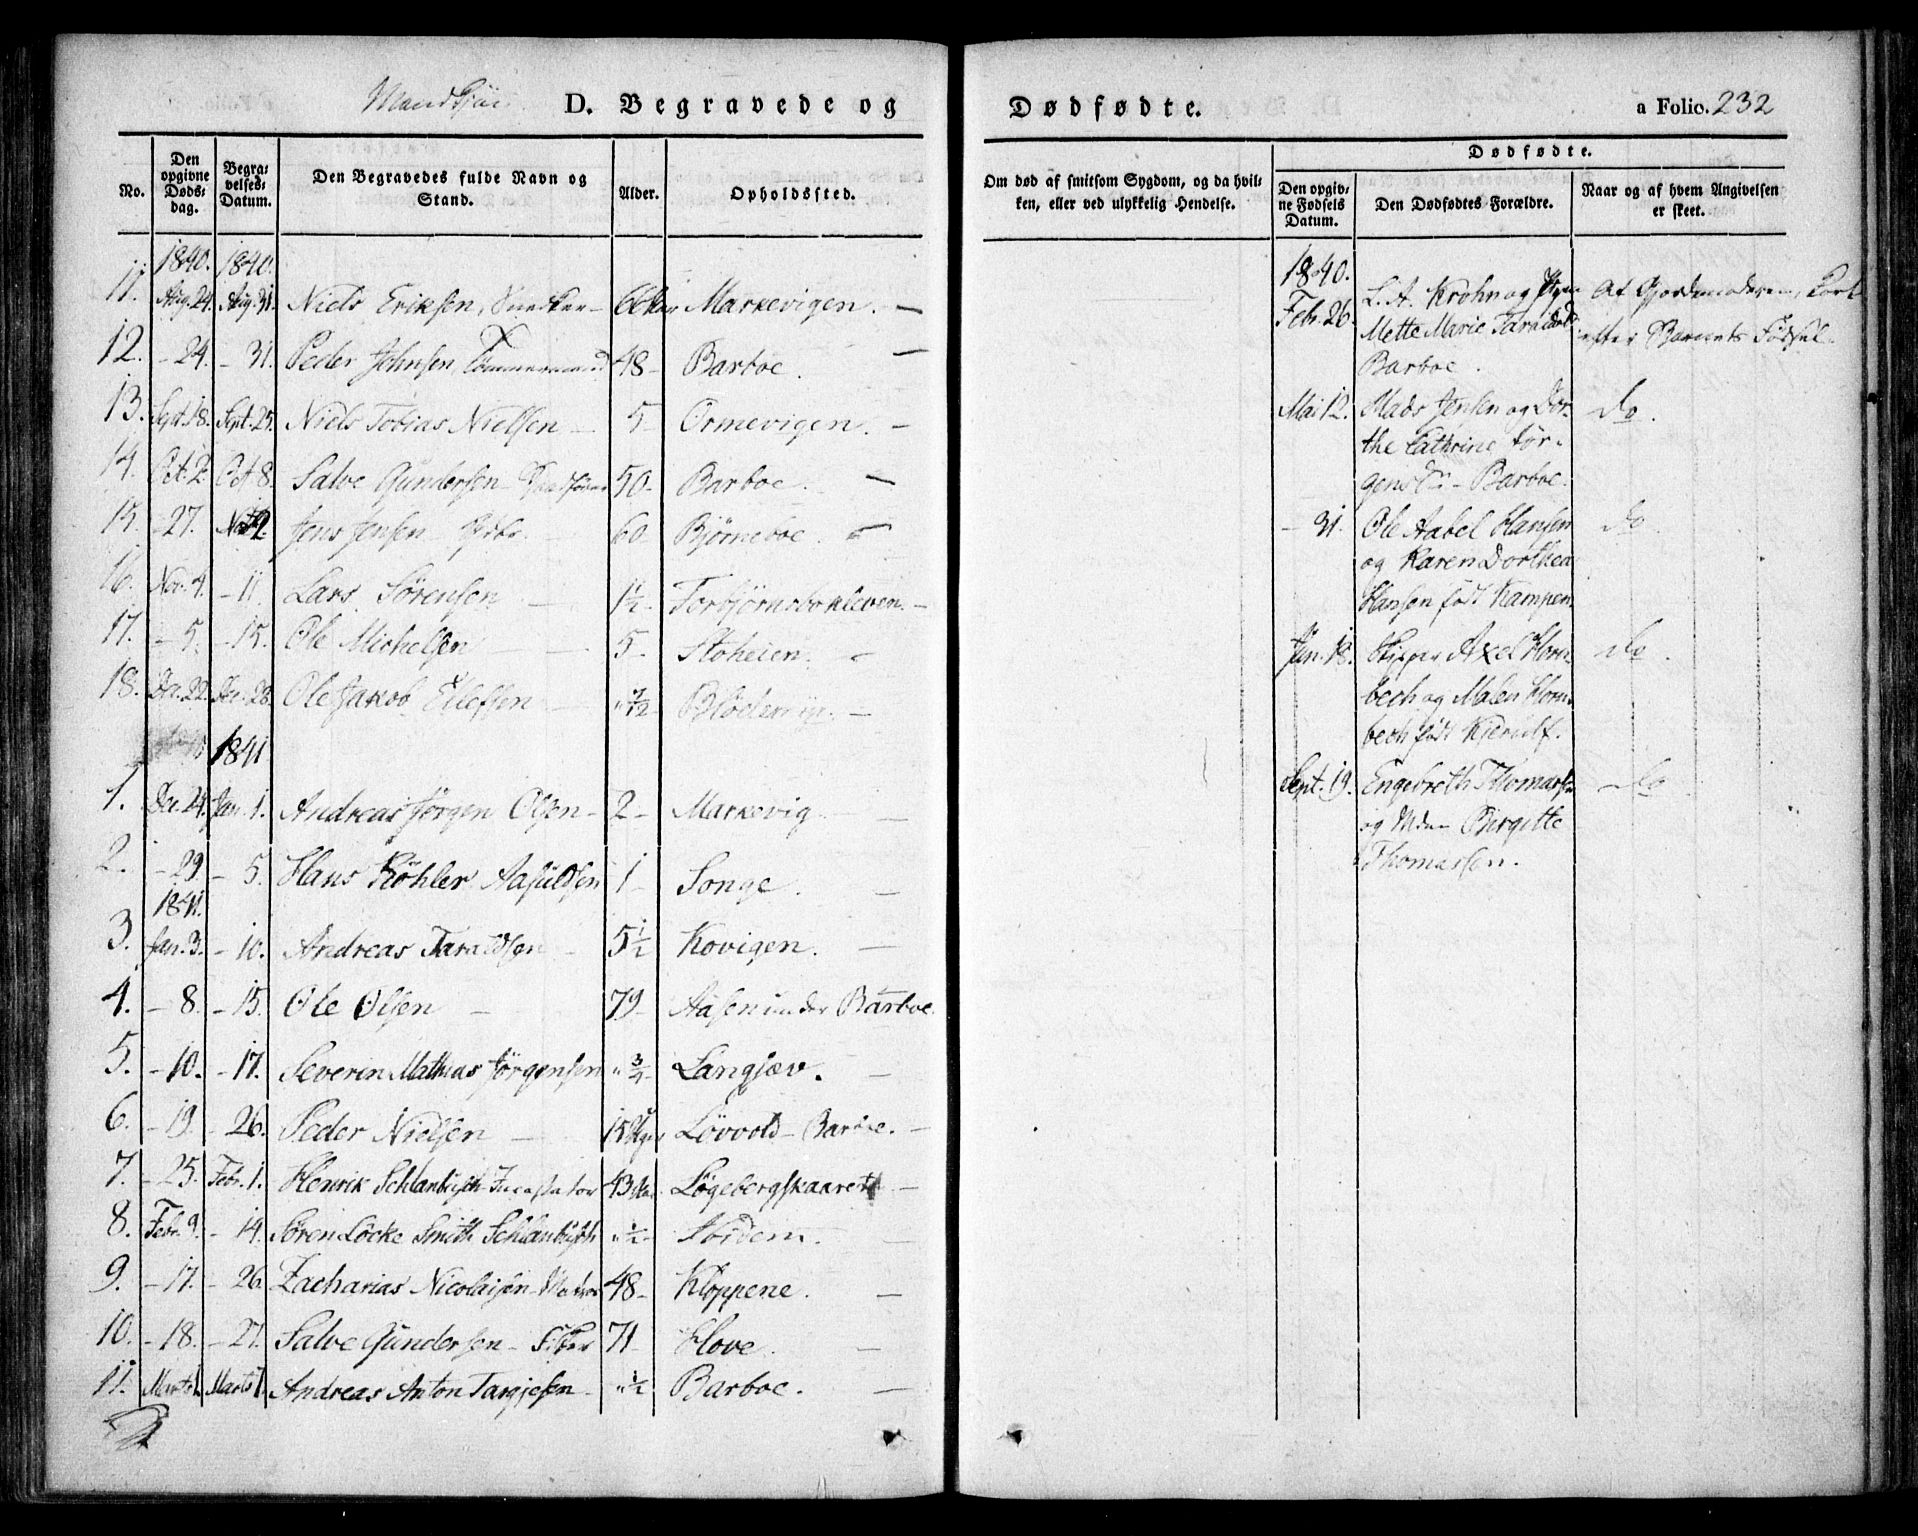 Mandkjøn D. Begravede og
No. Den opgivne Døds-dag. Begra-velses-Datum. Den Begravedes fulde Navn og Stand. Alder. Opholdssted.
1840. 1840.
11. Aug. 24. Aug. 31. Niels Eriksen, Snedker - 66 Aar Markevigen. -
12. - 24. - 31. Peder Johnsen Tømmermand 48 - Barboe. -
13. Sept. 18. Sept. 25. Niels Tobias Nielsen - 5 - Ormevigen. -
14. Oct. 2. Oct 8. Salve Gundersen - 50 - Barboe. -
15. - 27. Nov. 2. Jens Jensen - 60 Bjørneboe. -
16. Nov. 4. - 11. Lars Sørensen - 1½ - Torbjørnsbokleven. -
17. - 5. - 15. Ole Michelsen - 5 - Stoheien. -
18. Dec. 22. Dec. 28. Ole Jakob Eilefsen - Blødekjær. -
1841
1. Dec. 24. Jan. 1. Andreas Jørgen Olsen - 2 - Markevig -
2. - 29. - 5. Hans Køhler Aasuldsen 1 - Songe. -
1841.
3. Jan. 3. - 10. Andreas Taraldsen - 5½ Kovigen. -
4. - 8. - 15. Ole Olsen - 79 - Aasen under Barboe.
5. - 10. - 17. Severin Mathias Jørgensen " ¾ - Langsæv. -
6. - 19. - 26. Peder Nielsen - 15 Uger Løvvold - Barboe. -
7. - 25. Febr. 1. Henrik Schlanbusch 43 Aar Løgebergskaaret -
8. Febr. 9. - 14. Søren Løcke Smith Schlanbusch " ½ - Nordem. -
9. - 17. - 26. Zacharias Nicolaisen - Matros 48 - Kloppene. -
10. - 18. - 27. Salve Gundersen - 71 - Hove. -
11. Marts 1. Marts 7. Andreas Anton Targjesen - " ½ - Barboe. -
Dødfødte. a Folio. 232
Om død af smitsom Sygdom, og da hvil-ken, eller ved ulykkelig Hendelse.
Dødfødte.
Den opgiv-ne Fødsels Datum. Den Dødfødtes Forældre. Naar og af hvem Angivelsen er skeet.
1840.
Febr. 26. L. A. Krohn og Pigen Af Gjordemoderen, kort
Mette Marie Taraldsd. efter Barnets Fødsel.
Barboe.
Mai 12. Mads Jensen og Dor- do.
the Cathrine Jør-
gensd - Barboe.
- 31. Ole Aabel Hansen do
og Karen Dorthea
Hansen født Kampen.
Jun. 18. Skipper Axel Horn- do.
bech og Malen Horn-
bech født Kjerulf.
Sept. 19. Engebreth Thomassen do
og Birgitte
Thomassen.